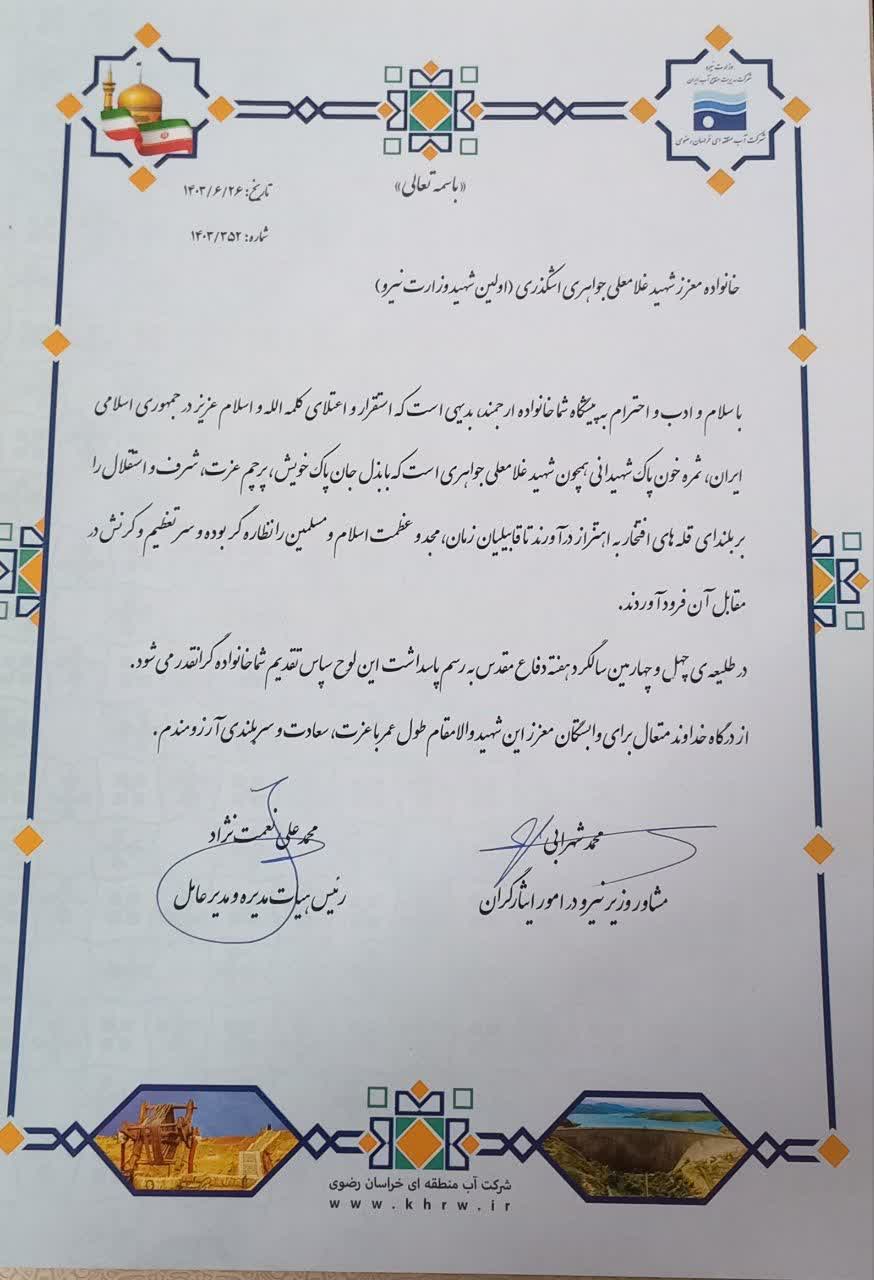 وزارت نیرو
شرکت مدیریت منابع آب ایران
شرکت آب منطقه ای خراسان رضوی
«باسمه تعالی»
تاریخ: ۱۴۰۳/۶/۲۶
شماره: ۱۴۰۳/۳۵۲
خانواده معزز شهید غلامعلی جواهری اشکذری (اولین شهید وزارت نیرو)
با سلام و ادب و احترام به پیشگاه شما خانواده ارجمند، بدیهی است که استقرار و اعتلای کلمه الله و اسلام عزیز در جمهوری اسلامی
ایران، ثمره خون پاک شهیدانی همچون شهید غلامعلی جواهری است که با بذل جان پاک خویش، پرچم عزت، شرف و استقلال را
بر بلندای قله های افتخار به اهتزاز درآورند تا قابیلیان زمان، مجد و عظمت اسلام و مسلمین را نظاره گر بوده و سر تعظیم و کرنش در
مقابل آن فرود آوردند.
در طلیعه ی چهل و چهارمین سالگرد هفته دفاع مقدس به رسم پاسداشت این لوح سپاس تقدیم شما خانواده گرانقدر می شود.
از درگاه خداوند متعال برای وابستگان معزز این شهید والامقام طول عمر با عزت، سعادت و سربلندی آرزومندم.
محمد شهرابی
مشاور وزیر نیرو در امور ایثارگران
محمد علی نعمت نژاد
رئیس هیات مدیره و مدیر عامل
شرکت آب منطقه ای خراسان رضوی
www.khrw.ir